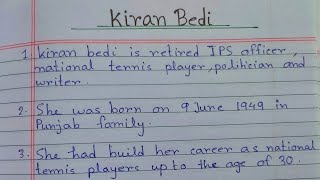 Kiran Bedi
1. kiran bedi is retired IPS officer,
national tennis player, polihician and
writer.
2. She was born on 9 June 1949 in
Punjab family.
3. She had build her career as national
tennis players up to the age of 30.